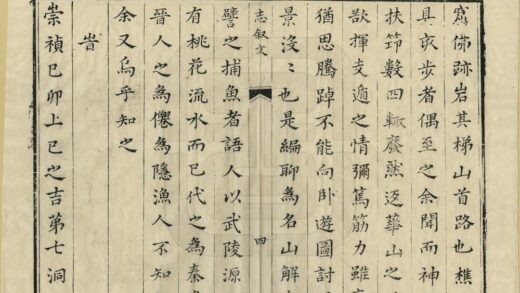 佛跡岩其梯山首路也樵
步者偶至之余聞而神
扶笻數四輒廢然返華山之
欲揮支遁之情彌篤筋力雖
猶思騰踔不能向卧遊圖討
景沒〻也是編聊為名山解
志叙文
四
譬之捕魚者語人以武陵源
有桃花流水而已代之為秦
晉人之為僊為隱漁人不知
余又烏乎知之
旹
崇禎己卯上巳之吉第七洞